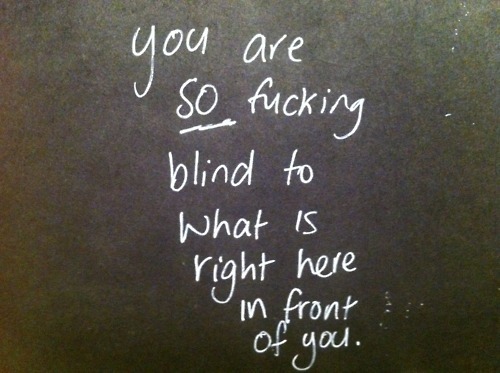 you are
so fucking
blind to
what is
right here
in front
of you.